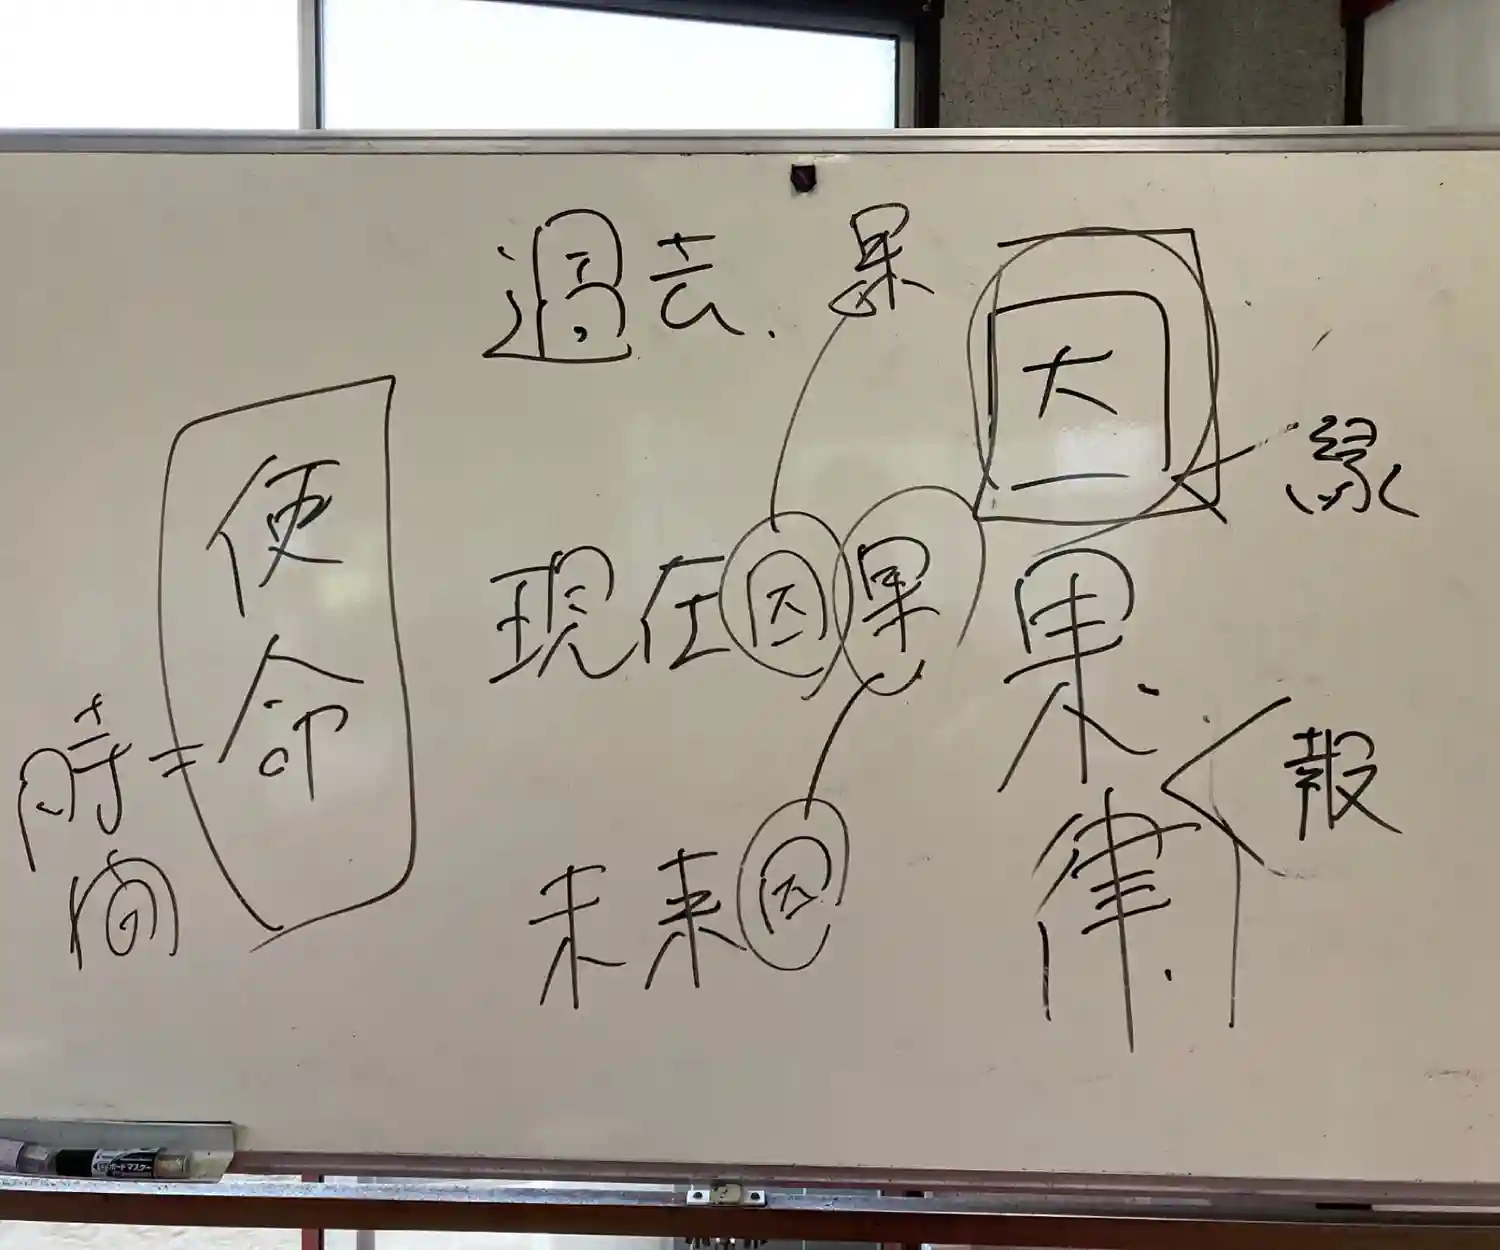 因果律
縁
報
過去、果
現在因果
未来因
使命
=
時間
ボードマスター